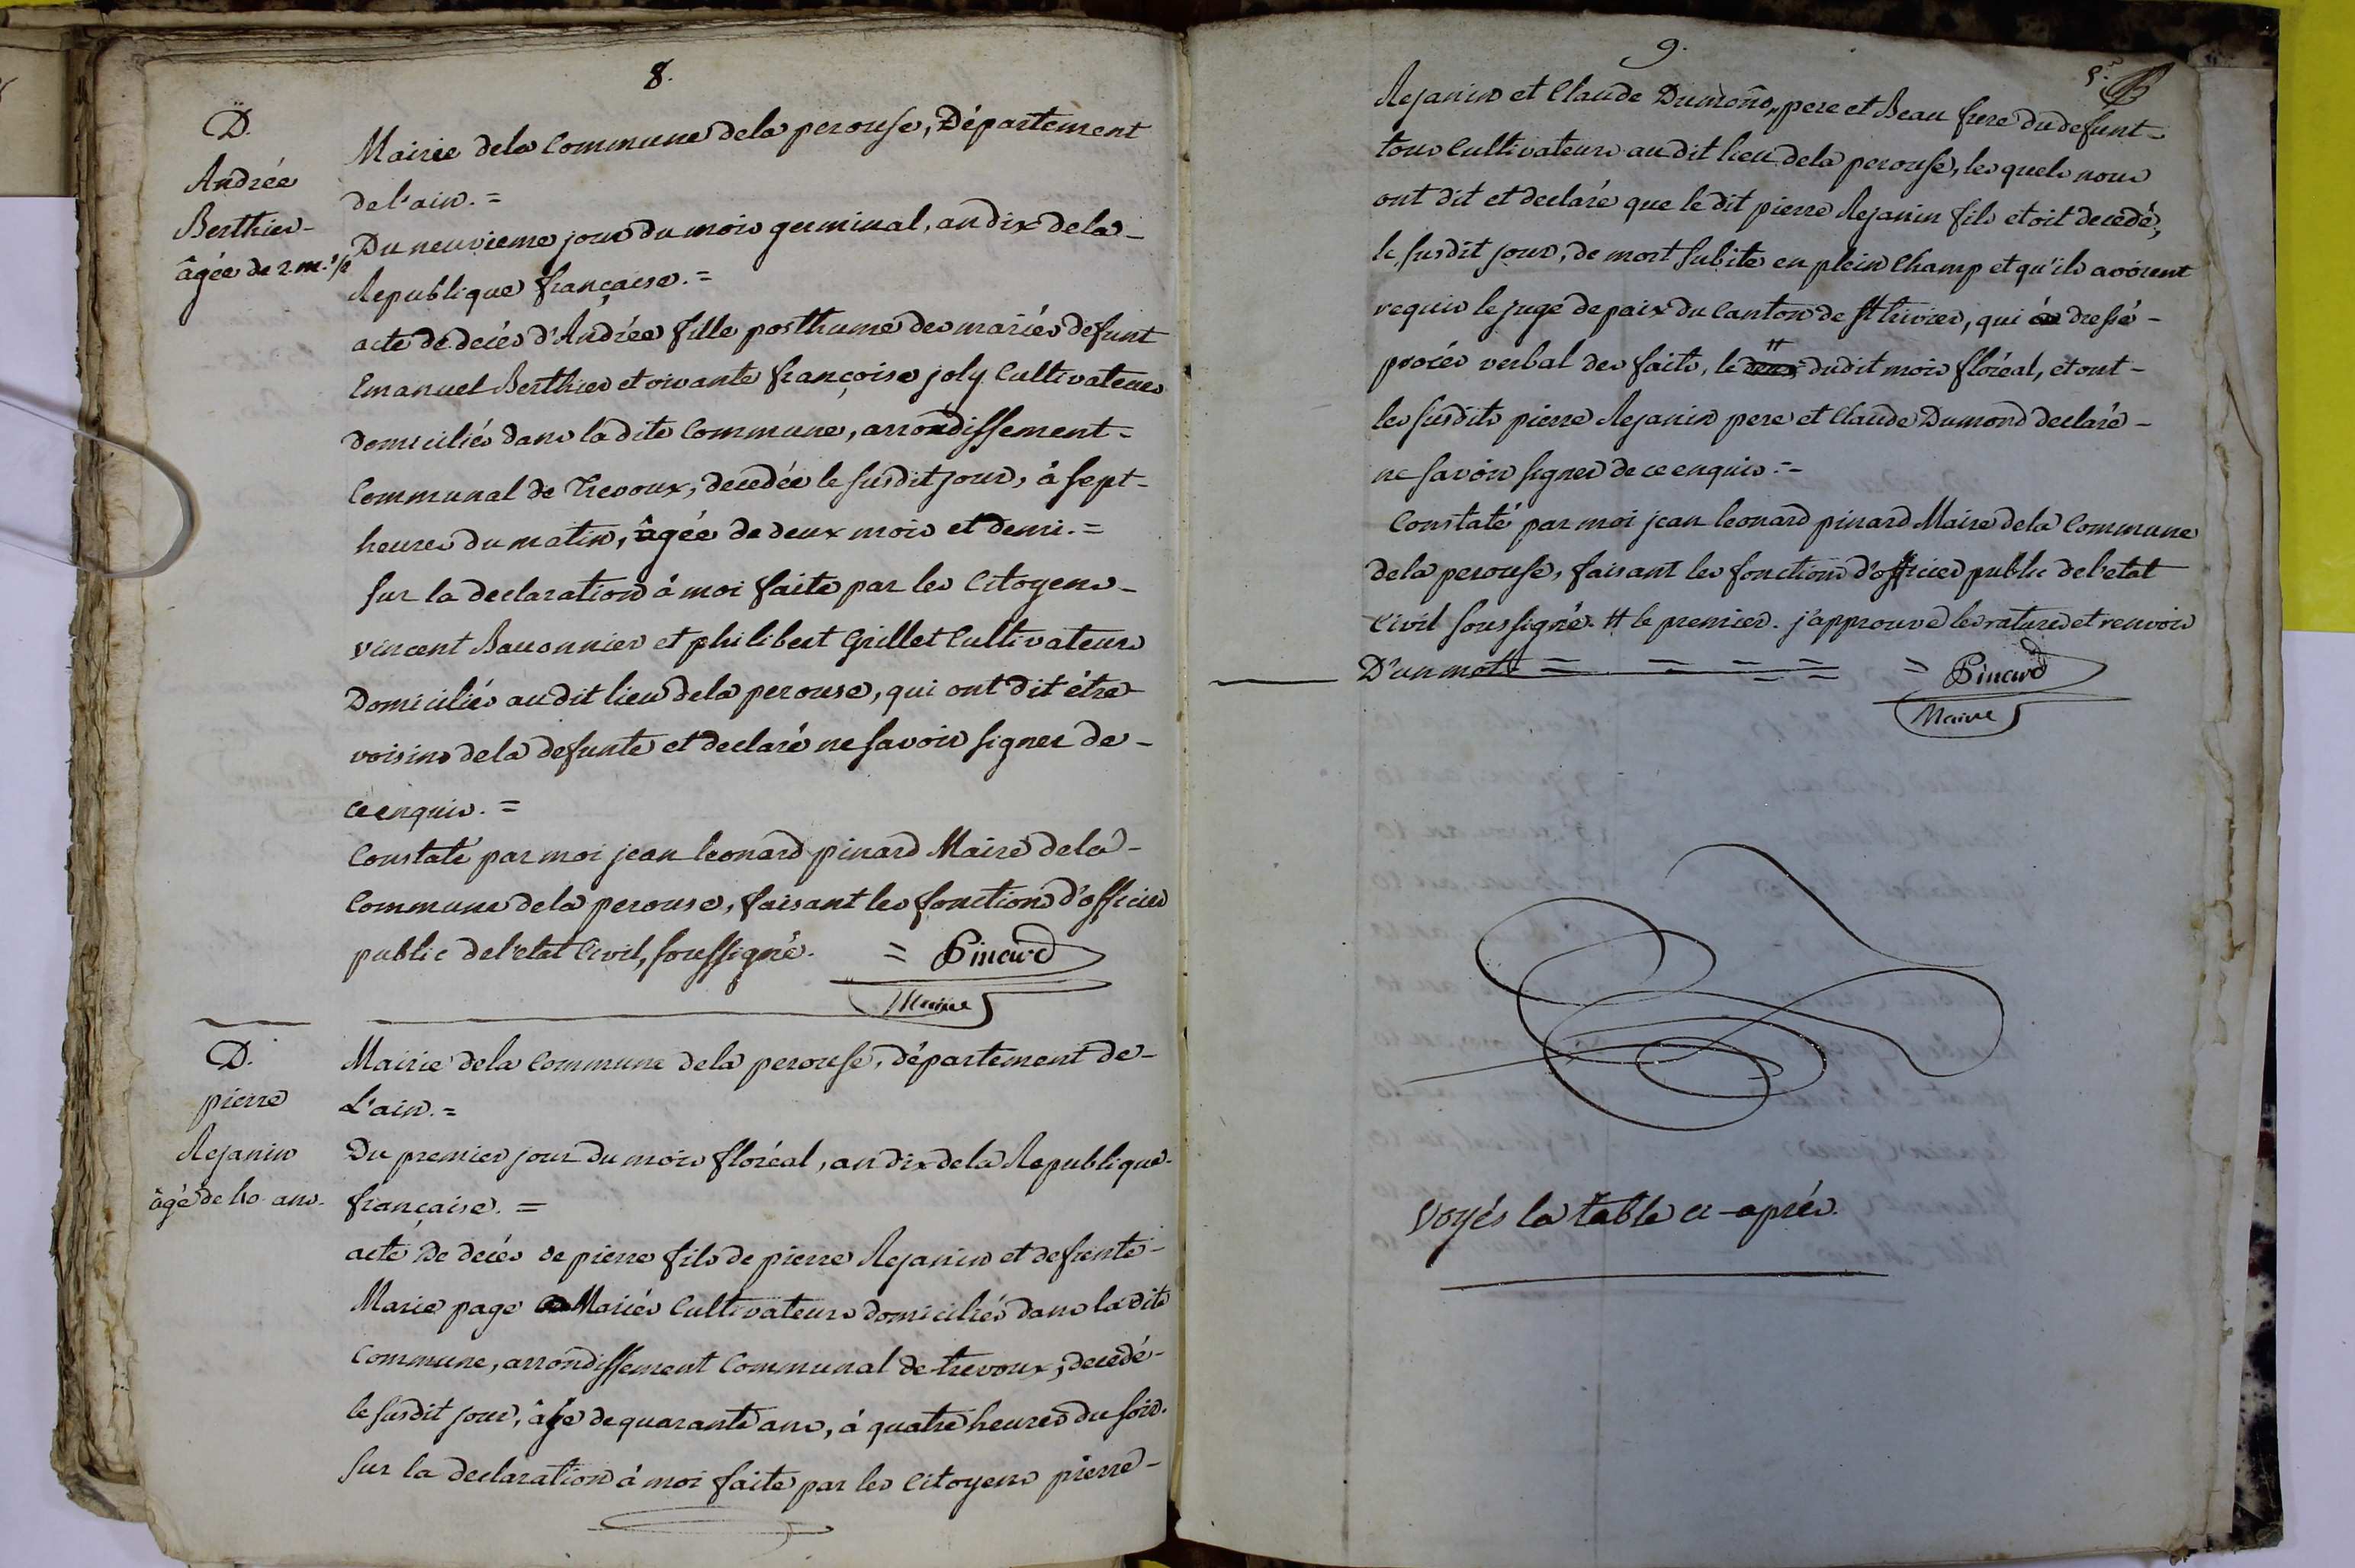 8.
D.
Andrée
Berthier
âgée de 2. m. 1/2
Mairie dela Commune dela perouse, Département
de l'ain. =
Du neuvieme jour du mois germinal, an dix dela
Republique française. =
acte de decés d'Andrée fille posthume des mariés defunt
Emanuel Berthier et vivante françoise joly Cultivateurs
domiciliés dans la dite Commune, arrondissement
Communal de Trevoux, decedée le susdit jour, à sept
heures du matin, âgée de deux mois et demi. =
sur la declaration à moi faite par les Citoyens
vincent Bauonnier et philibert Grillet Cultivateurs
Domiciliés au dit lieu dela perouse, qui ont dit être
voisins dela defunte et declaré ne savoir signer de
ce enquis. =
Constaté par moi jean leonard pinard Maire dela
Commune dela perouse, faisant les fonctions d'officier
public del'etat Civil, soussigné. = Pinard
Maire
D.
pierre
Rejanin
âgé de 40 ans
Mairie dela Commune dela perouse, département de
L'ain. =
Du premier jour du mois floréal, an dix dela Republique
française. =
acte De decés de pierre fils de pierre Rejanin et defunte
Marie page Mariés Cultivateurs domiciliés dans la dite
Commune, arrondissement Communal de trevoux, decedé
le susdit jour, âgé de quarante ans, à quatre heures du soir.
sur la declaration à moi faite par les Citoyens pierre
9.
Rejanin et Claude Dumond, pere et Beau frere du defunt
tous Cultivateurs au dit lieu dela perouse, les quels nous
ont dit et declaré que le dit pierre Rejanin fils etoit decedé,
le susdit jour, de mort subite en plein champ et qu'ils avoient
requis le juge de paix du Canton de St trivier, qui a dressé
procés verbal des faits, le # dudit mois floréal, et ont
les susdits pierre Rejanin pere et Claude Dumond declaré
ne savoir signer de ce enquis. =
Constaté par moi jean leonard pinard Maire dela Commune
dela perouse, faisant les fonctions d'officier public del'etat
Civil soussigné. # le premier. j'approuve les ratures et renvoir
D'un mot = = = = = Pinard
Maire
Voyés la table ci-aprés.